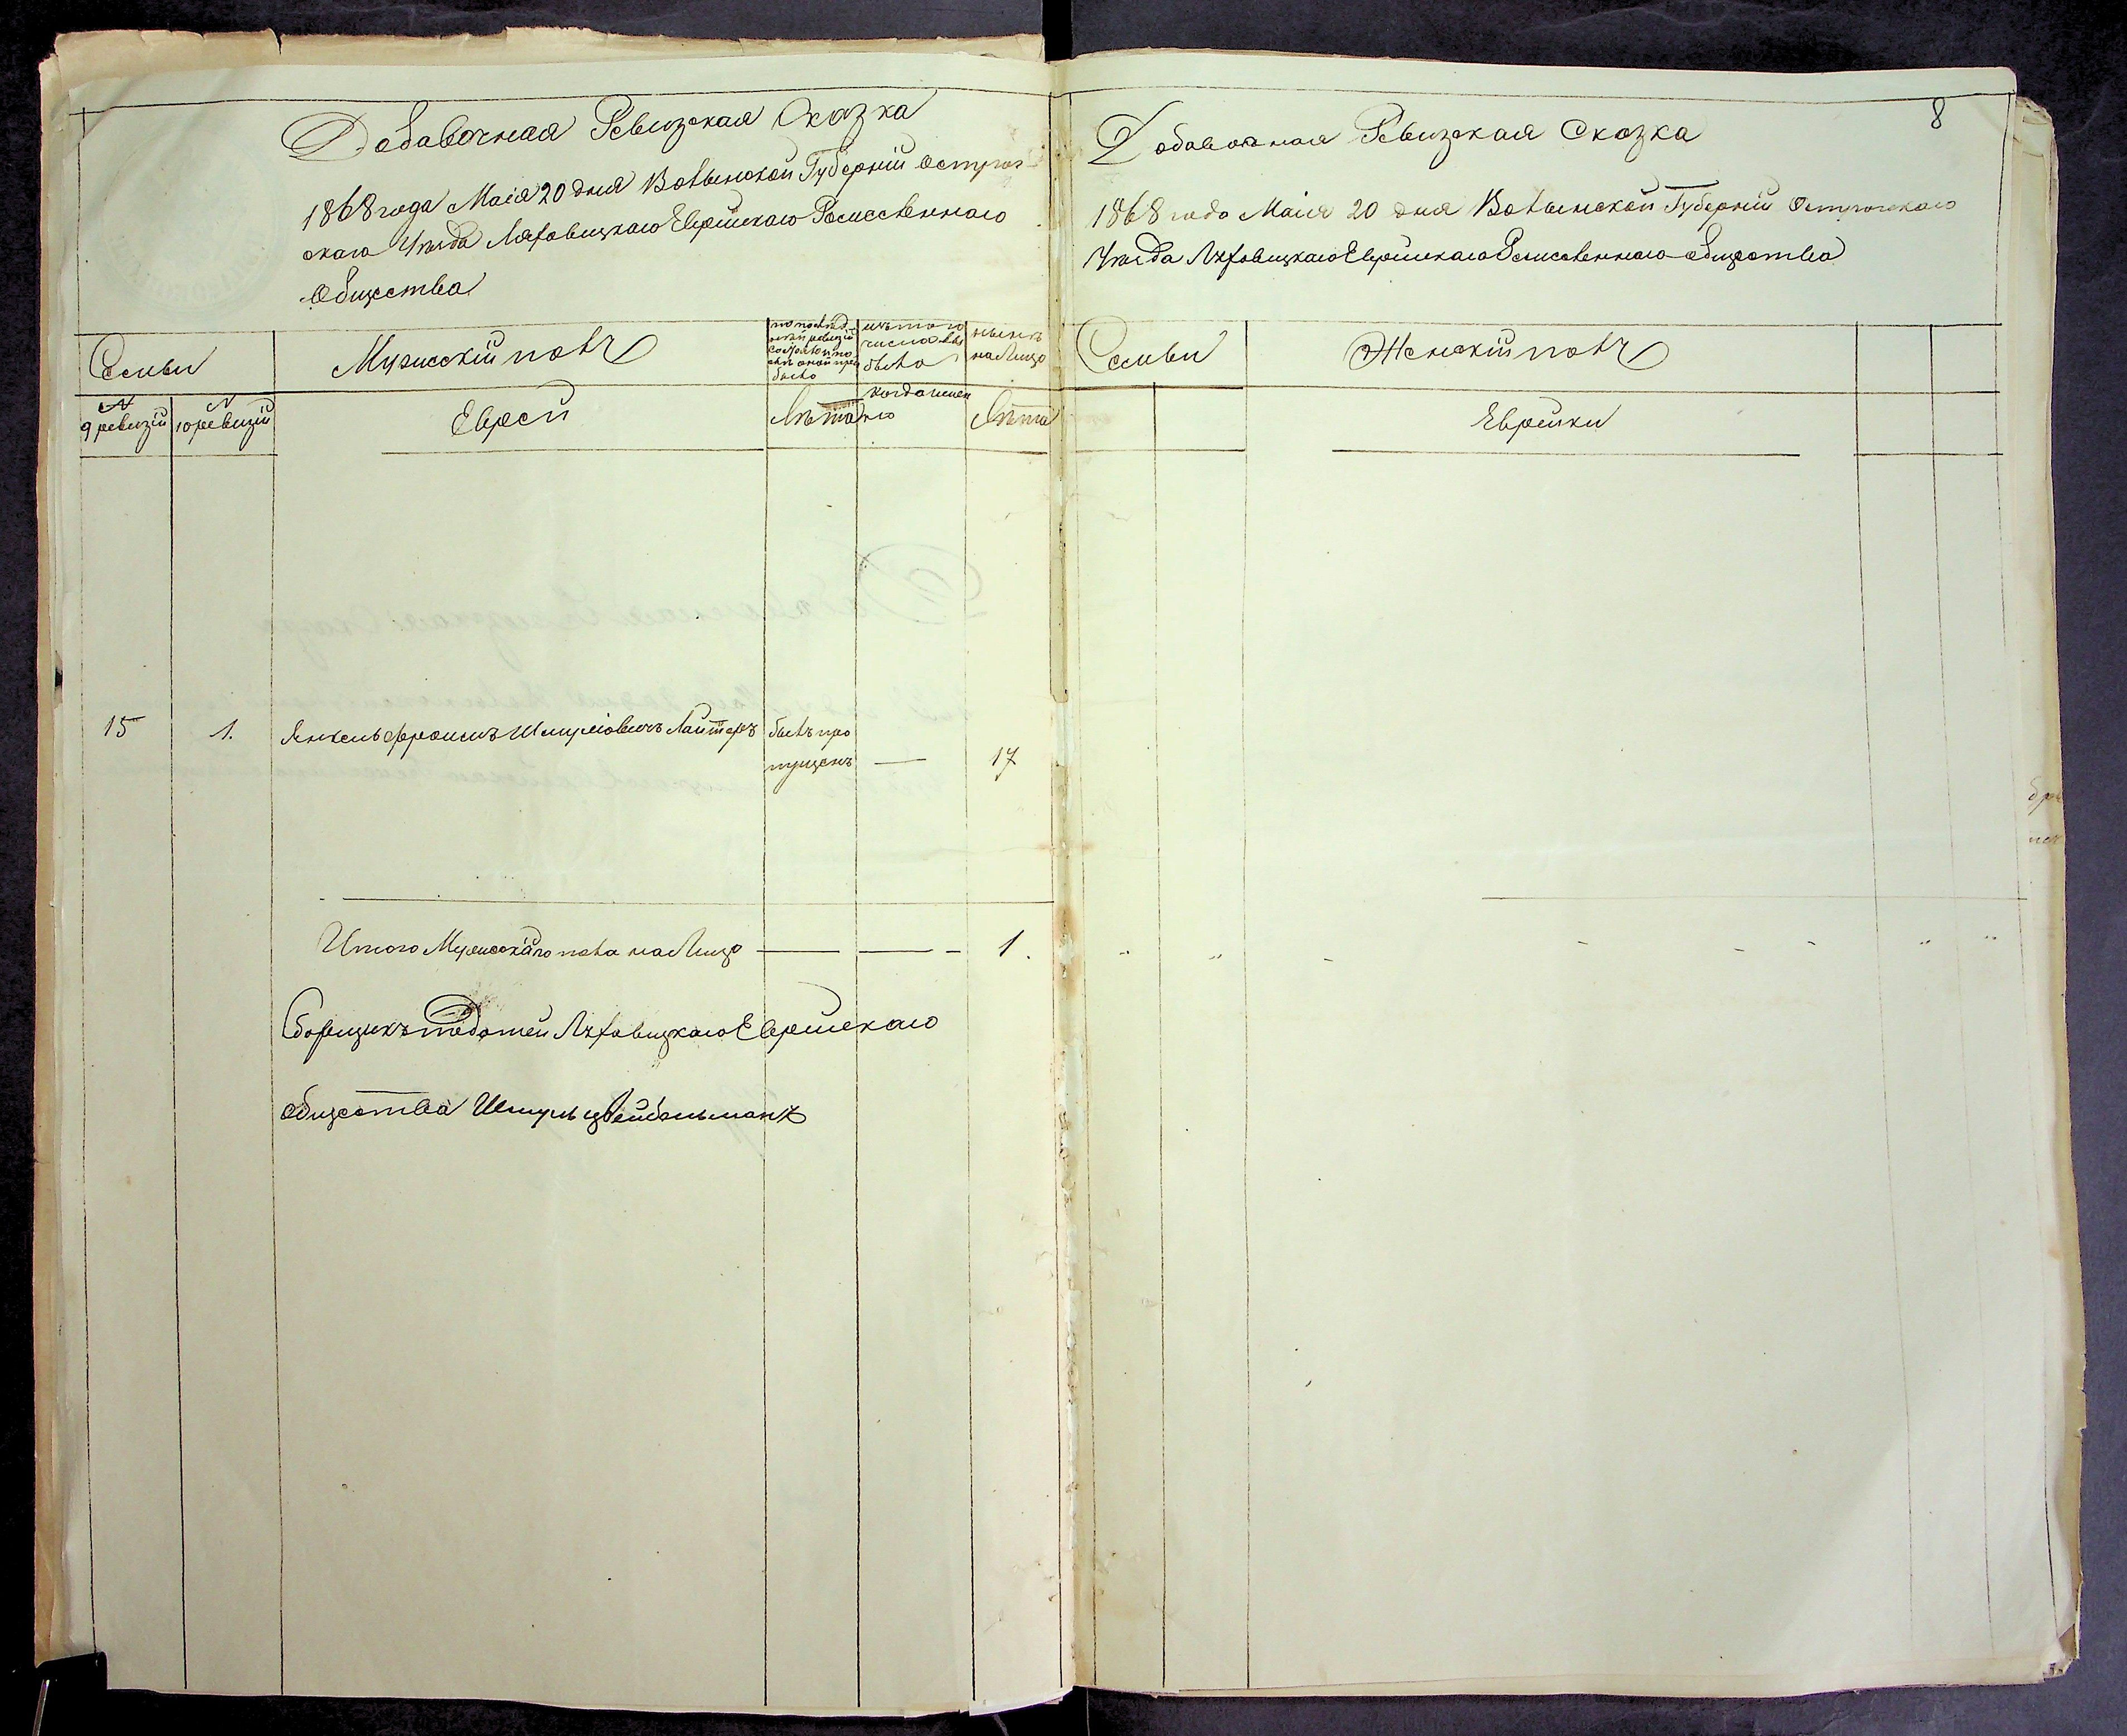 Добавочная Ревизская Сказка
1868 года Маія 20 дня Волынской Губерніи Острож-
скаго Уѣзда Ляховицкаго Еврейскаго Ремисленнаго
Общества
Семьи
Мужескій полъ
по послѣд-
ней ревизіи
состояло и по-
слѣ оной при
было
изъ того
числа вы
было
нынѣ
на лицо
№
9 ревизіи
№
10 ревизіи
Евреи
Лѣта
когда имен
но
Лѣта
15
1.
Янкель Фроимъ Шмулiовичъ Лайтеръ
былъ про
пущенъ
—
17
Итого Мужескаго пола на лицо — — - 1.
Сборщикъ податей Ляховицкаго Еврейскаго
общества Шмуль
8
Добавочная Ревизская Сказка
1868 года Маія 20 дня Волынской Губерніи Острожскаго
Уѣзда Ляховицкаго Еврейскаго Ремисленнаго общества
Семьи
Женскій полъ
Еврейки